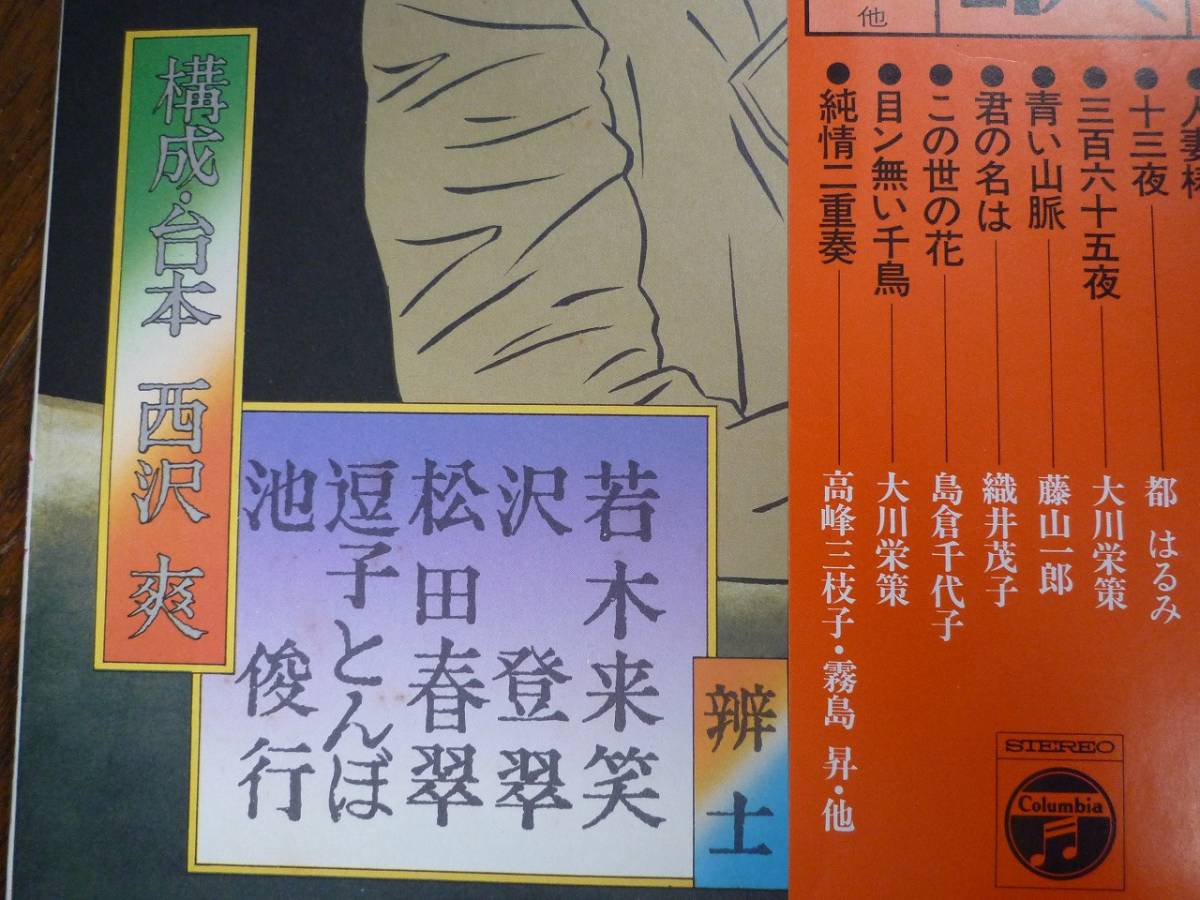 他
十三夜 都 はるみ
●三百六十五夜 大川栄策
●青い山脈 藤山一郎
●君の名は 織井茂子
●この世の花 島倉千代子
●目ン無い千鳥 大川栄策
●純情二重奏 高峰三枝子・霧島 昇・他
STEREO
Columbia
辨士
若木来笑
沢 登翠
松田春翠
逗子とんぼ
池 俊行
構成・台本 西沢 爽